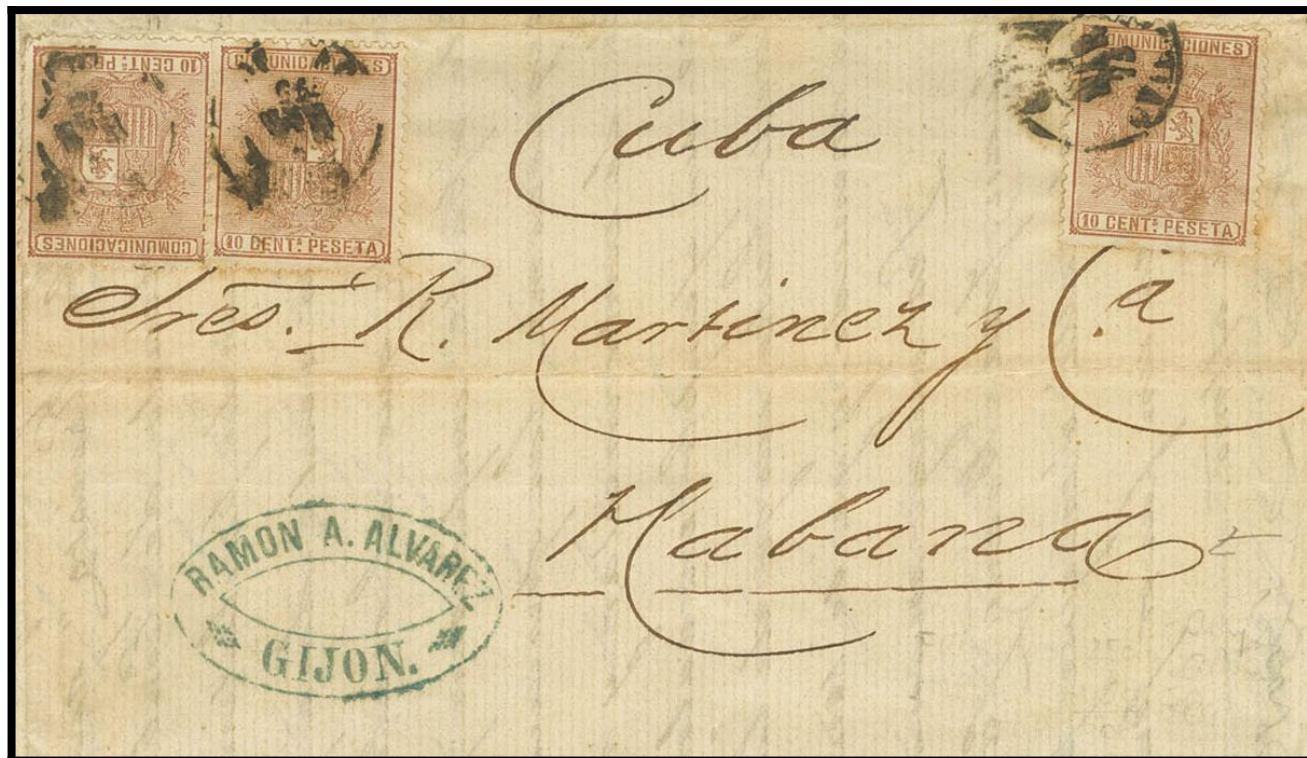 10 CENT.ˢ PESETA
COMUNICACIONES
COMUNICACIONES
10 CENT.ˢ PESETA
COMUNICACIONES
10 CENT.ˢ PESETA
Cuba
Sres. R. Martinez y C.ª
Habana
RAMON A. ALVAREZ
GIJON.